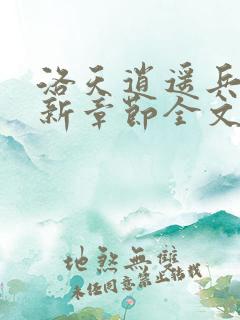 洛天逍遥兵
新章节全文
地煞无双
未经同意禁止转载